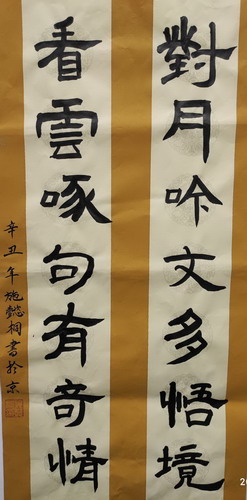 對月吟文多悟境
看雲啄句有奇情
辛丑年施懿桐書於京